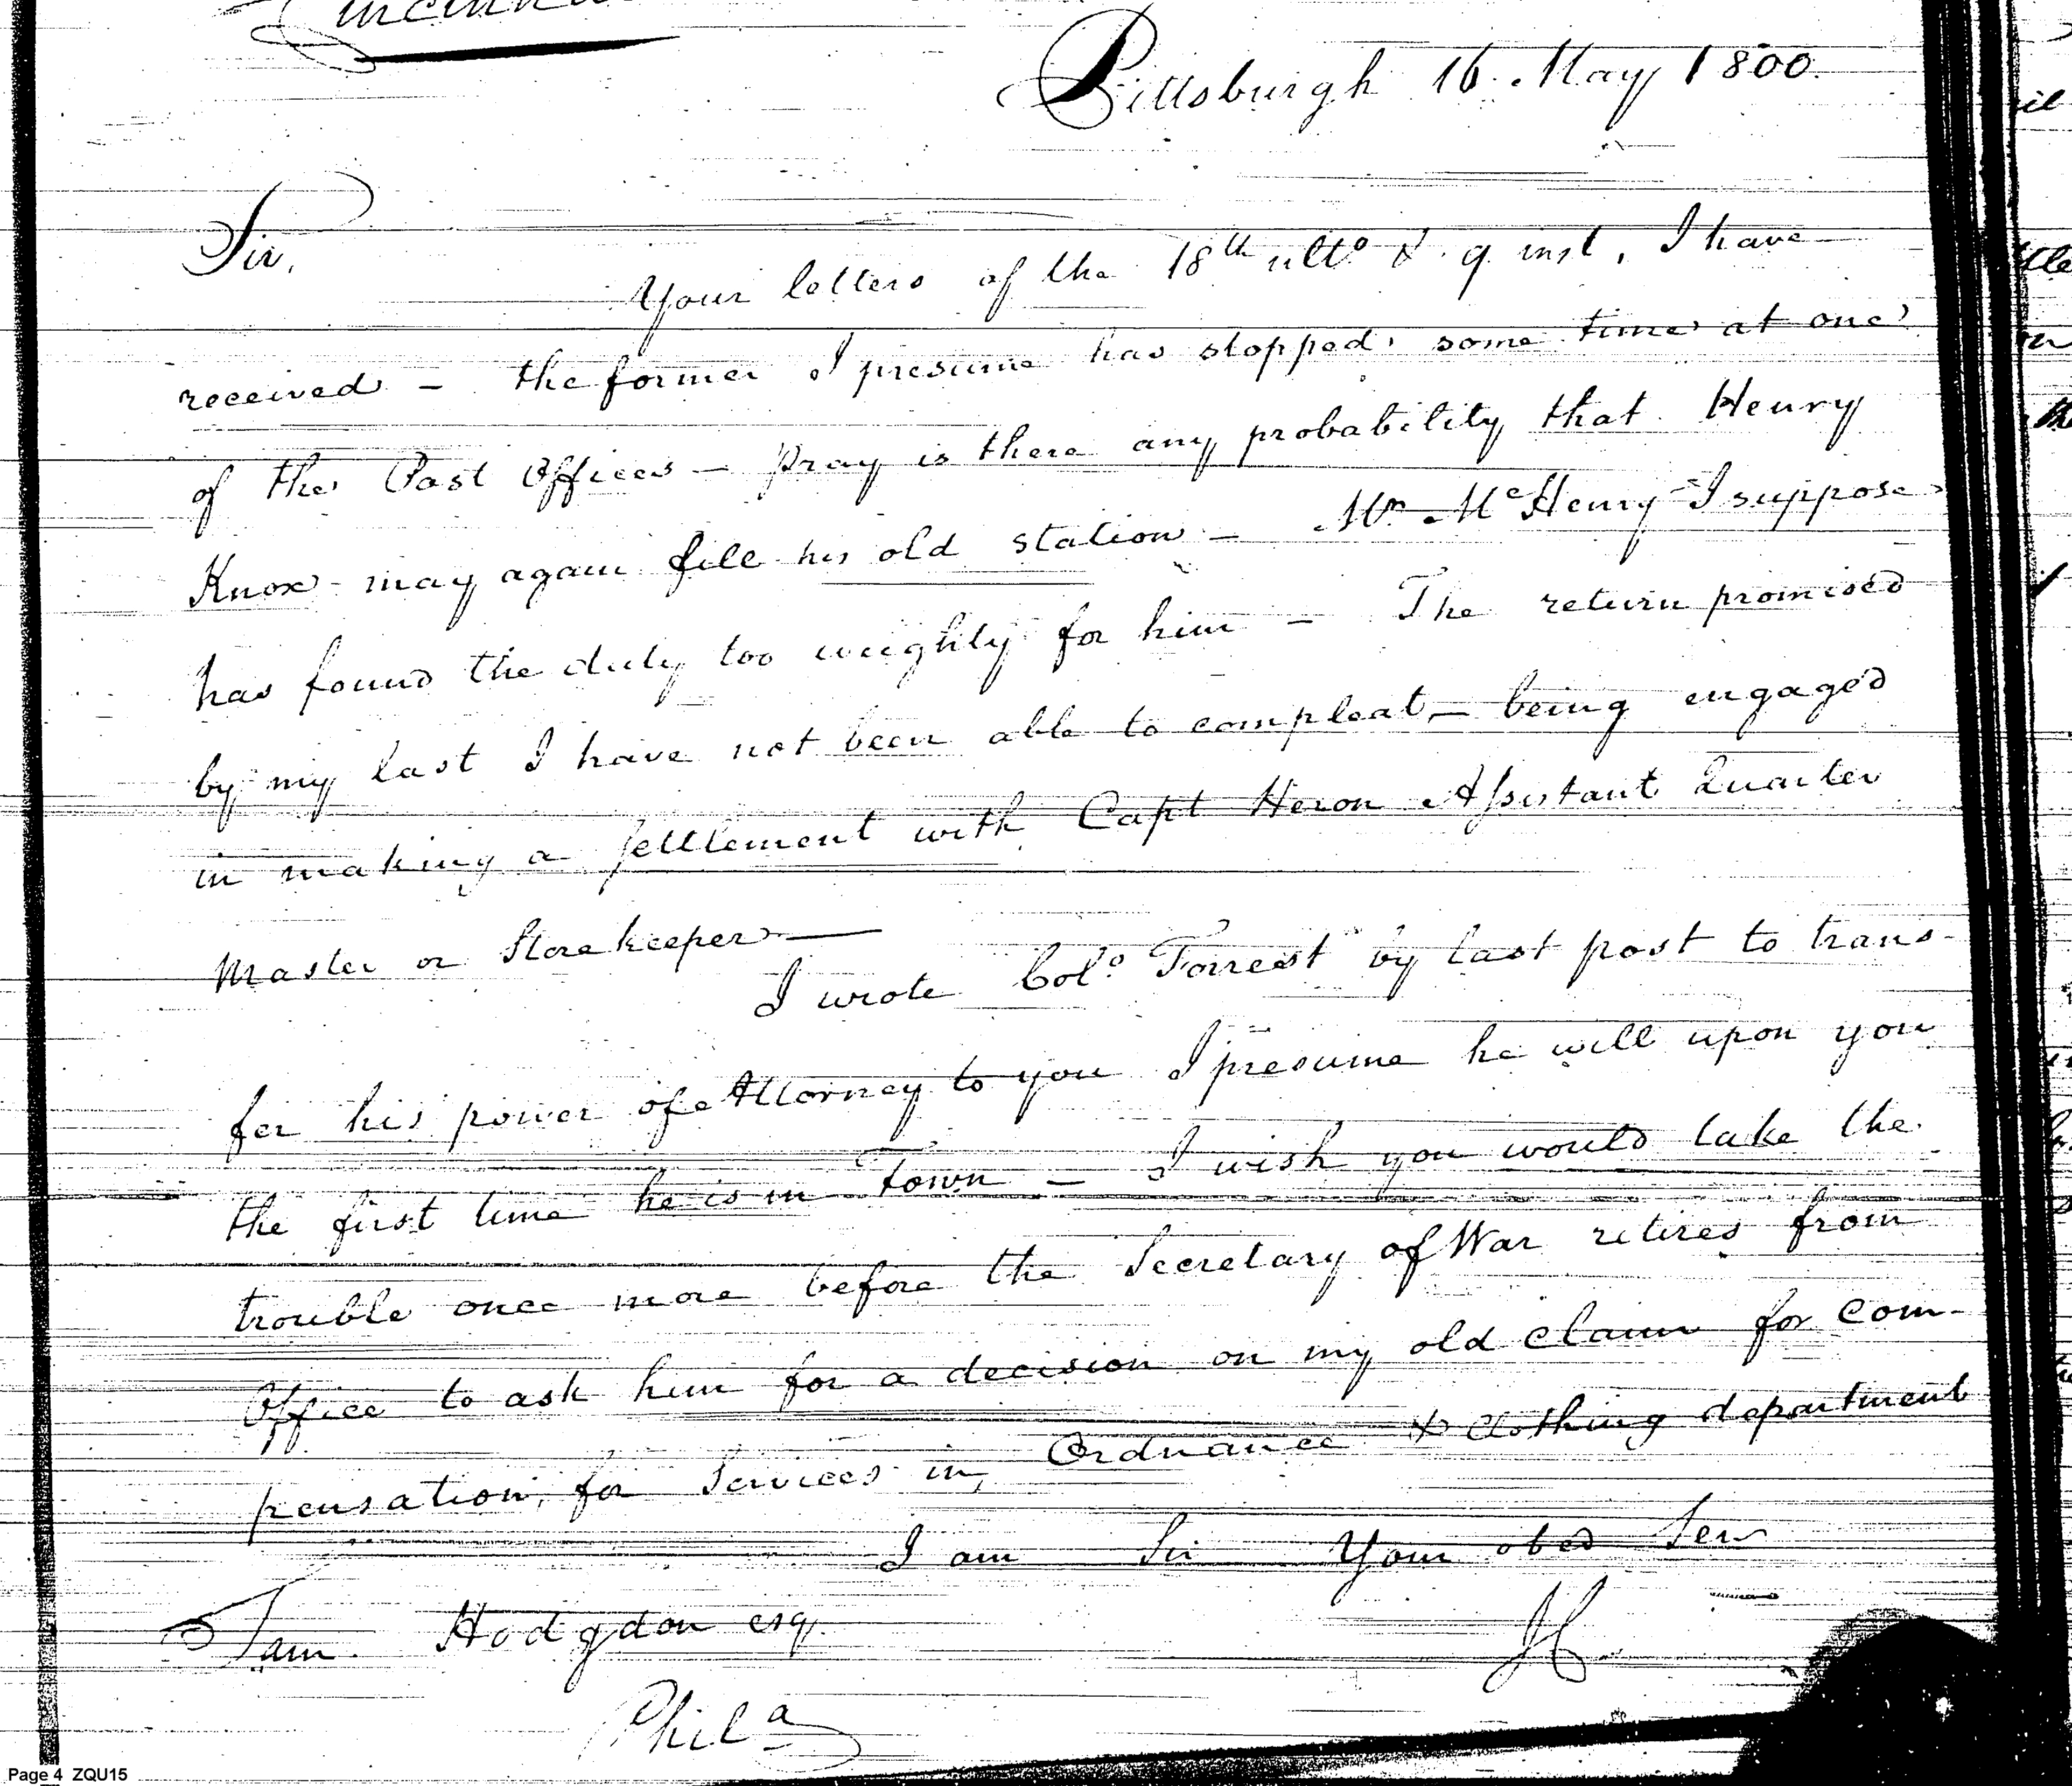 Cincinna
Pittsburgh 16 May 1800.
Sir,
Your letters of the 18th ulto & 9 inst, I have
received - the former I presume has stopped some time at one
of the Post Offices - pray is there any probability that Henry
Knox may again fill his old station - Mr McHenry I suppose
has found the duty too weighty for him - The return promised
by my last I have not been able to compleat - being engaged
in making a settlement with Capt Heron Assistant Quarter
Master or Storekeeper -
I wrote Colo Forrest by last post to trans-
fer his power of Attorney to you I presume he will upon you
the first time he is in Town - I wish you would take the
trouble once more before the Secretary of War retires from
Office to ask him for a decision on my old claim for com-
pensation for Services in Ordnance & Clothing department
I am Sir Your obed Ser
Sam Hodgdon esq.
Phila
Page 4 ZQU15